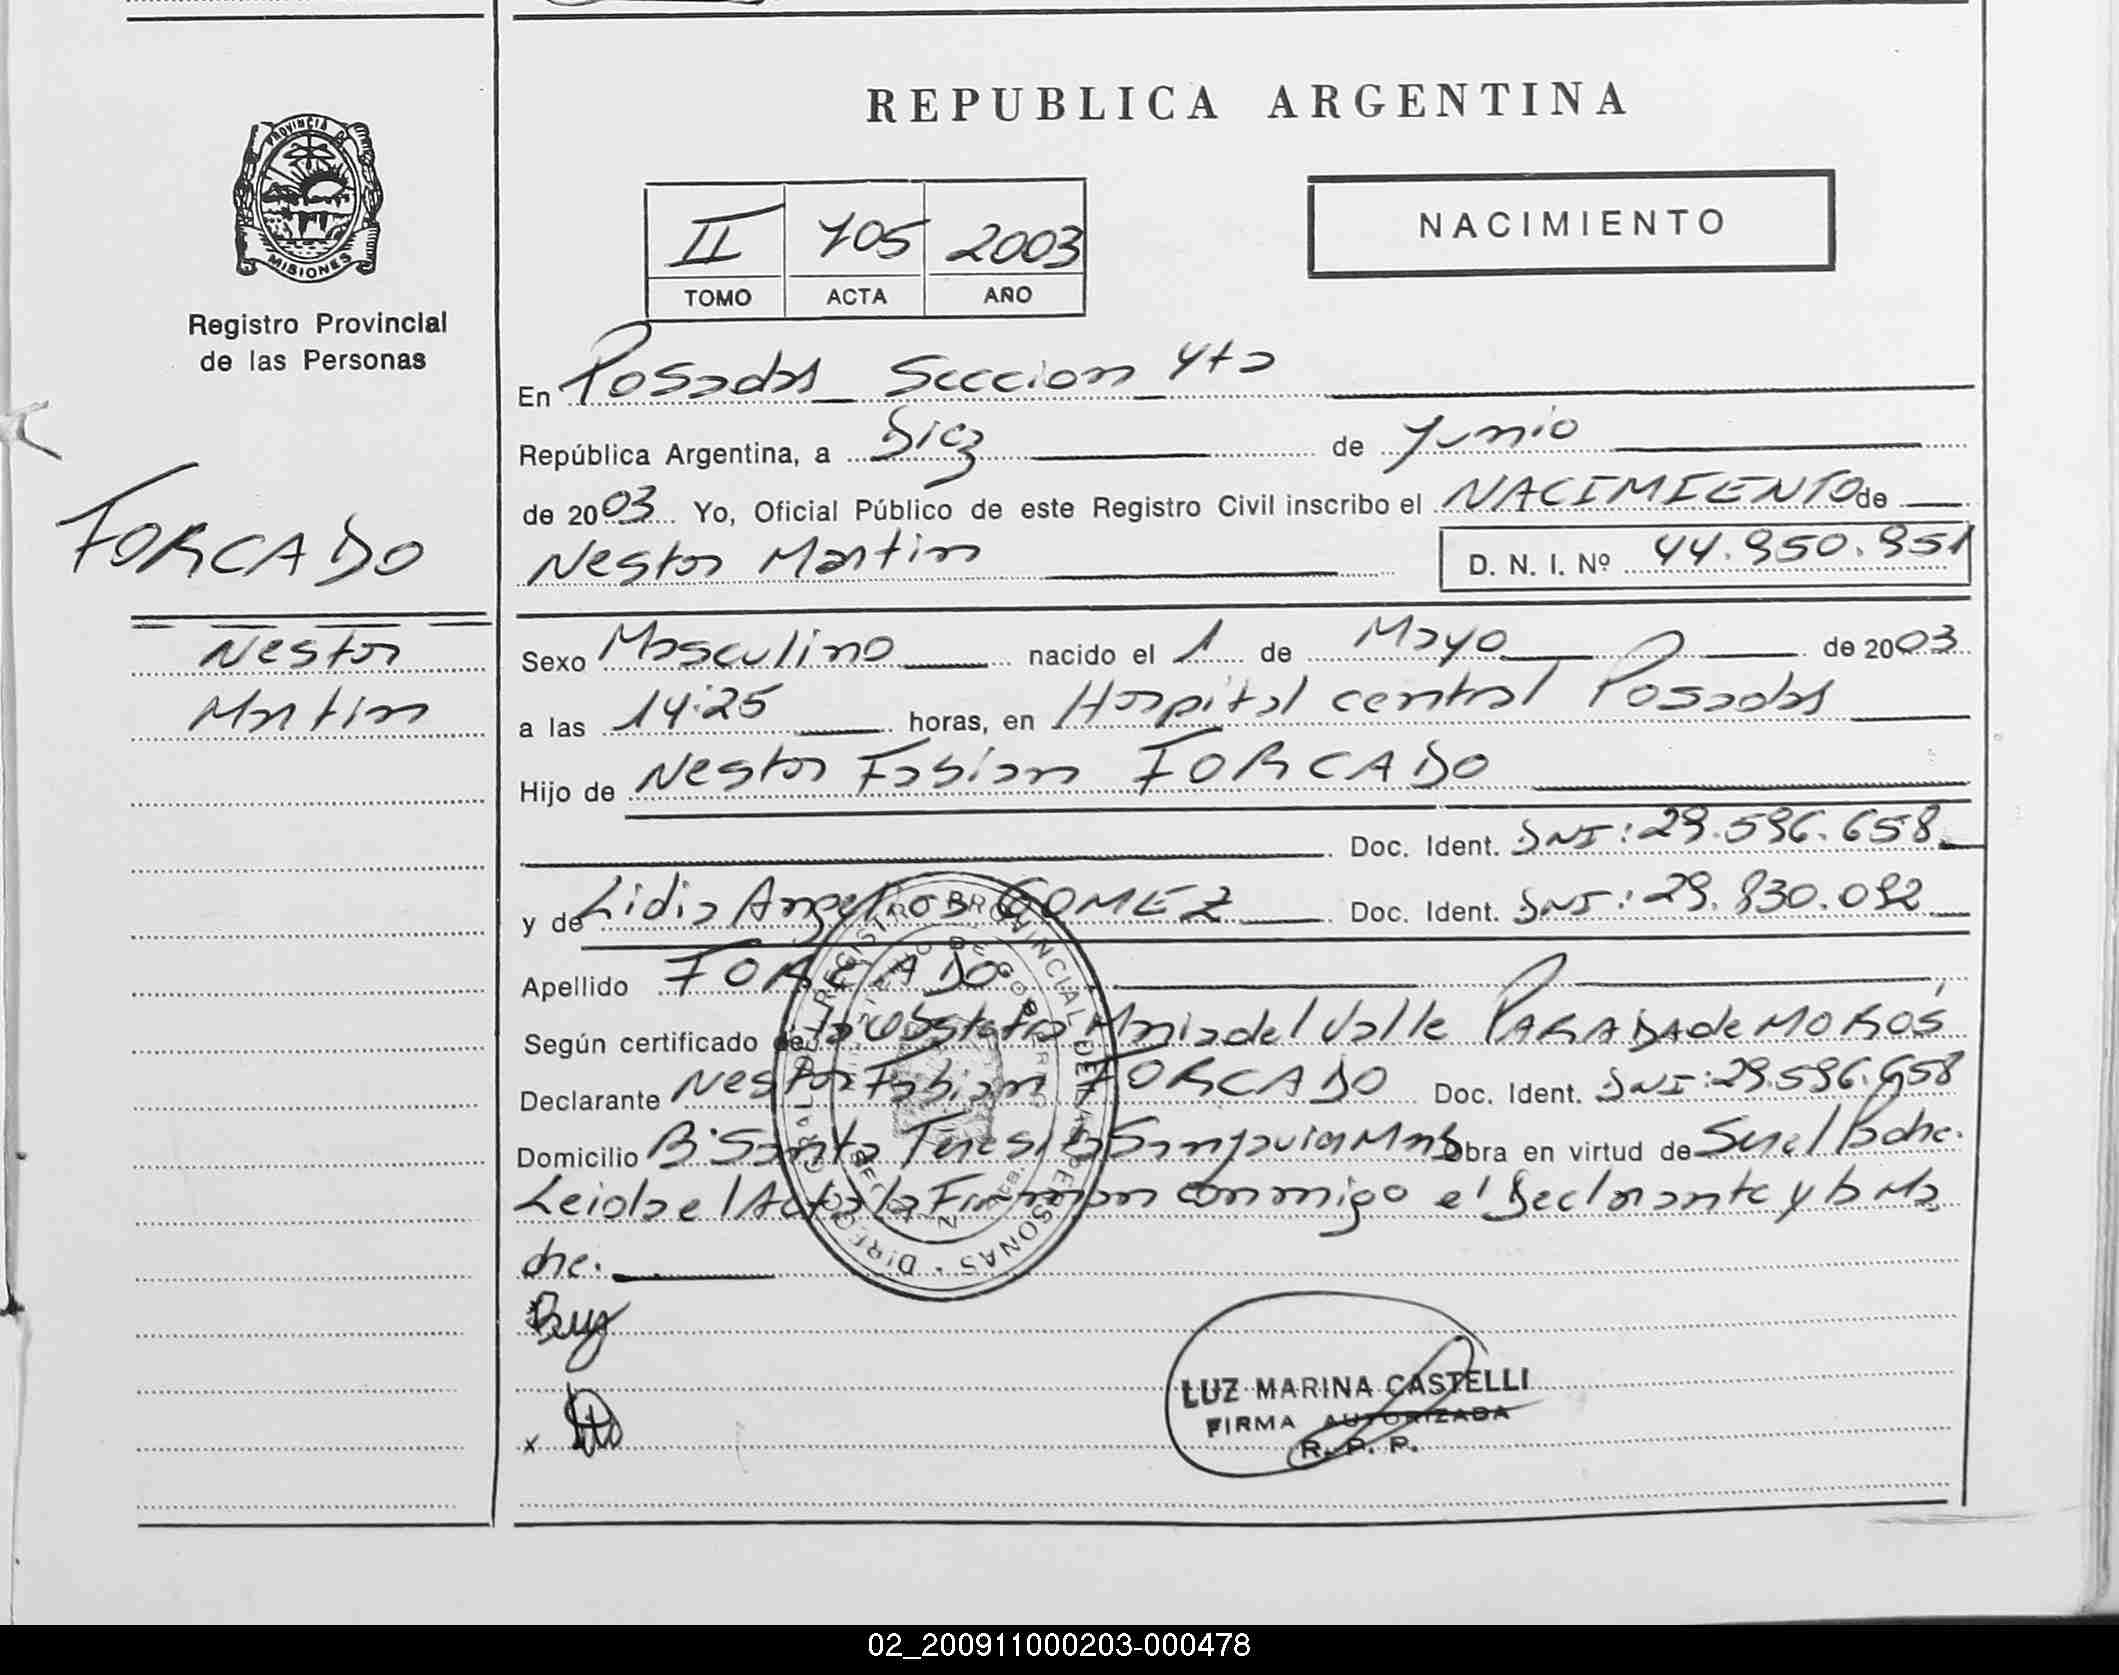 PROVINCIA DE
MISIONES
Registro Provincial
de las Personas
FORCADO
Nestor
Martin
REPUBLICA ARGENTINA
II 705 2003
TOMO ACTA AÑO
NACIMIENTO
En Posadas Seccion 4ta
República Argentina, a Diez de Junio
de 2003 Yo, Oficial Público de este Registro Civil inscribo el NACIMIENTO de
Nestor Martin D. N. I. Nº 44.950.951
Sexo Masculino nacido el 1 de Mayo de 2003
a las 14:25 horas, en Hospital central Posadas
Hijo de Nestor Fabian FORCADO
Doc. Ident. DNI: 29.596.658
y de Lidia Angelica GOMEZ Doc. Ident. DNI: 29.930.092
Apellido FORCADO
Según certificado de la Obstetra Maria del Valle PARADA de MOROS
Declarante Nestor Fabian FORCADO Doc. Ident. DNI: 29.596.658
Domicilio Bº Santa Teresita San Javier Mns Obra en virtud de Ser el Padre.
Leida el Acta la Firman conmigo el Declarante y la Ma
dre.
LUZ MARINA CASTELLI
FIRMA AUTORIZADA
R. P. P.
02_200911000203-000478